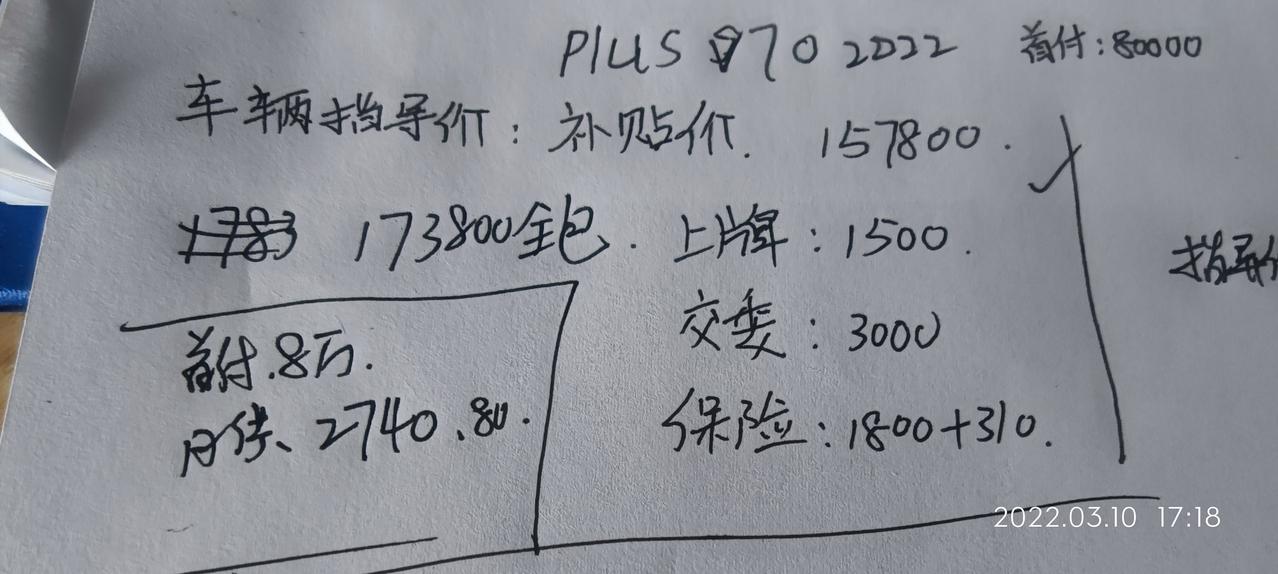 PLUS 70 2022 首付:80000
车辆指导价:补贴价. 157800.
173800全包. 上牌:1500.
指导
交委:3000
首付.8万.
月供、2740.80.
保险:1800+310.
2022.03.10 17:18